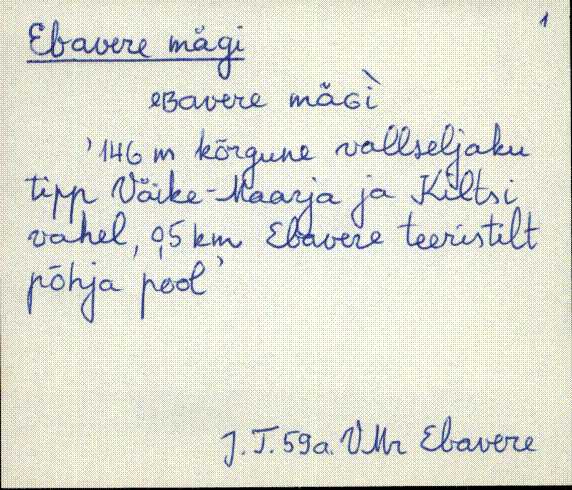 1
Ebavere mägi
eBavere mäGì
'146 m kõrgune vallseljaku
tipp Väike-Maarja ja Kiltsi
vahel, 0,5 km Ebavere teeristilt
põhja pool'
J.T. 59a. VMr Ebavere